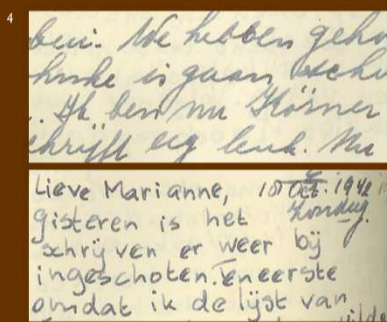 4
ben. We hebben geho
hinke is gaan schu
.. Ik ben nu Körner
chrijft erg leuk. Nu
Lieve Marianne, 18 Oct. 1942
Zondag.
gisteren is het
schrijven er weer bij
ingeschoten. Teneerste
omdat ik de lijst van